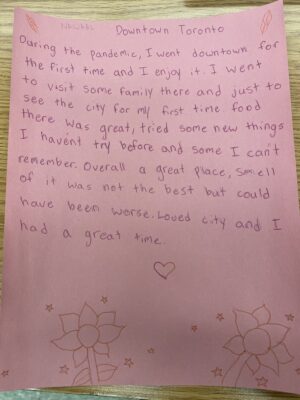 NAWAAL Downtown Toronto
During the pandemic, I went downtown for
the first time and I enjoy it. I went
to visit some family there and just to
see the city for my first time. food
there was great, tried some new things
I havent try before and some I can't
remember. Overall a great place, smell
of it was not the best but could
have been worse. Loved city and I
had a great time.